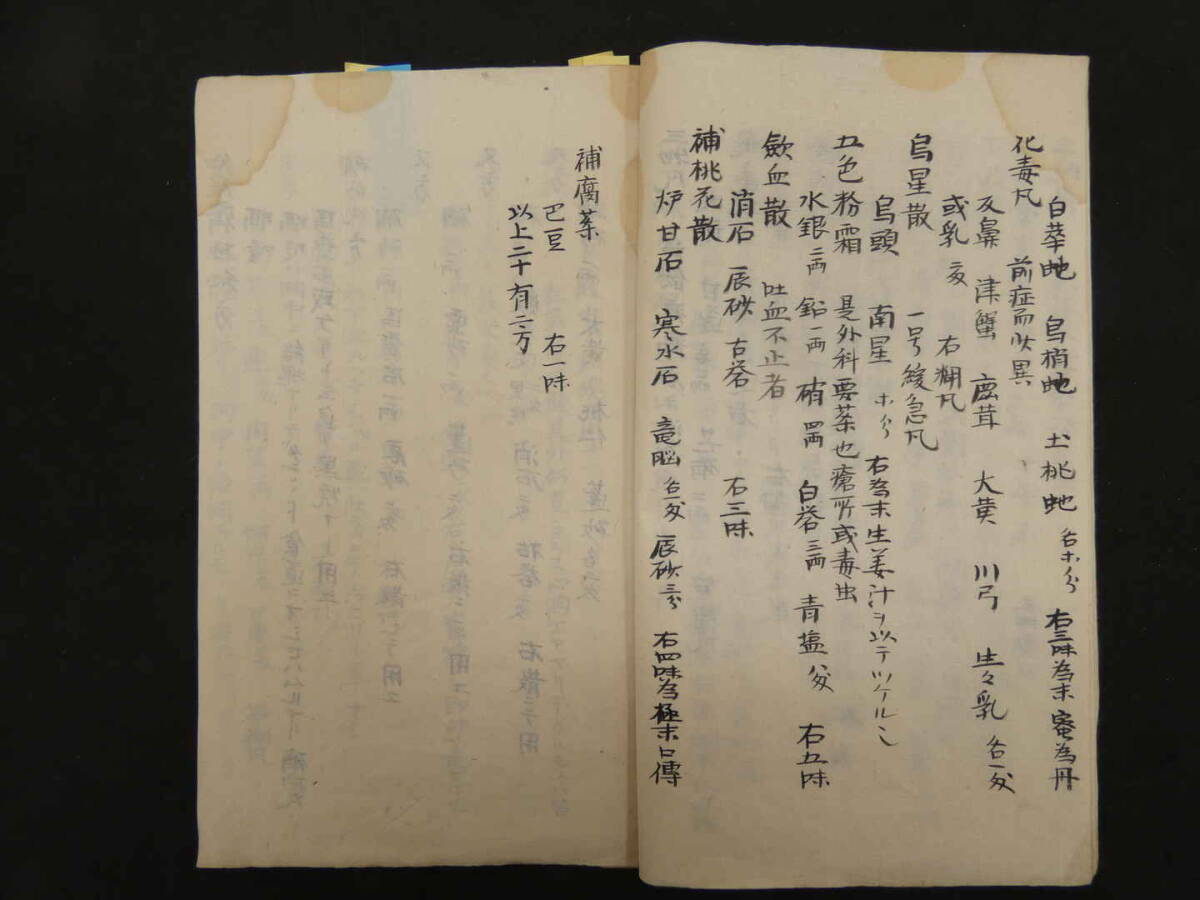 白華蛇 烏梢蛇 土桃蛇 各ホ分 右三味為末蜜為丹
化毒凡 前症而状異
反鼻 津蟹 鹿茸 大黄 川弓 生々乳 各一匁
或乳 右糊凡
烏星散 一号緩急凡
烏頭 南星 ホ分 右為末生姜汁ヲ以テツケル
五色粉霜 是外科要薬也瘡所或毒虫
水銀 二両 鉛 一両 硝 四両 白礬 三両 青塩 右五味
斂血散 吐血不止者
消石 辰砂 古礬 右三味
補桃花散
炉甘石 寒水石 竜脳 各一匁 辰砂 三分 右四味為極末口傳
補腐薬
巴豆 右一味
以上二十有二方